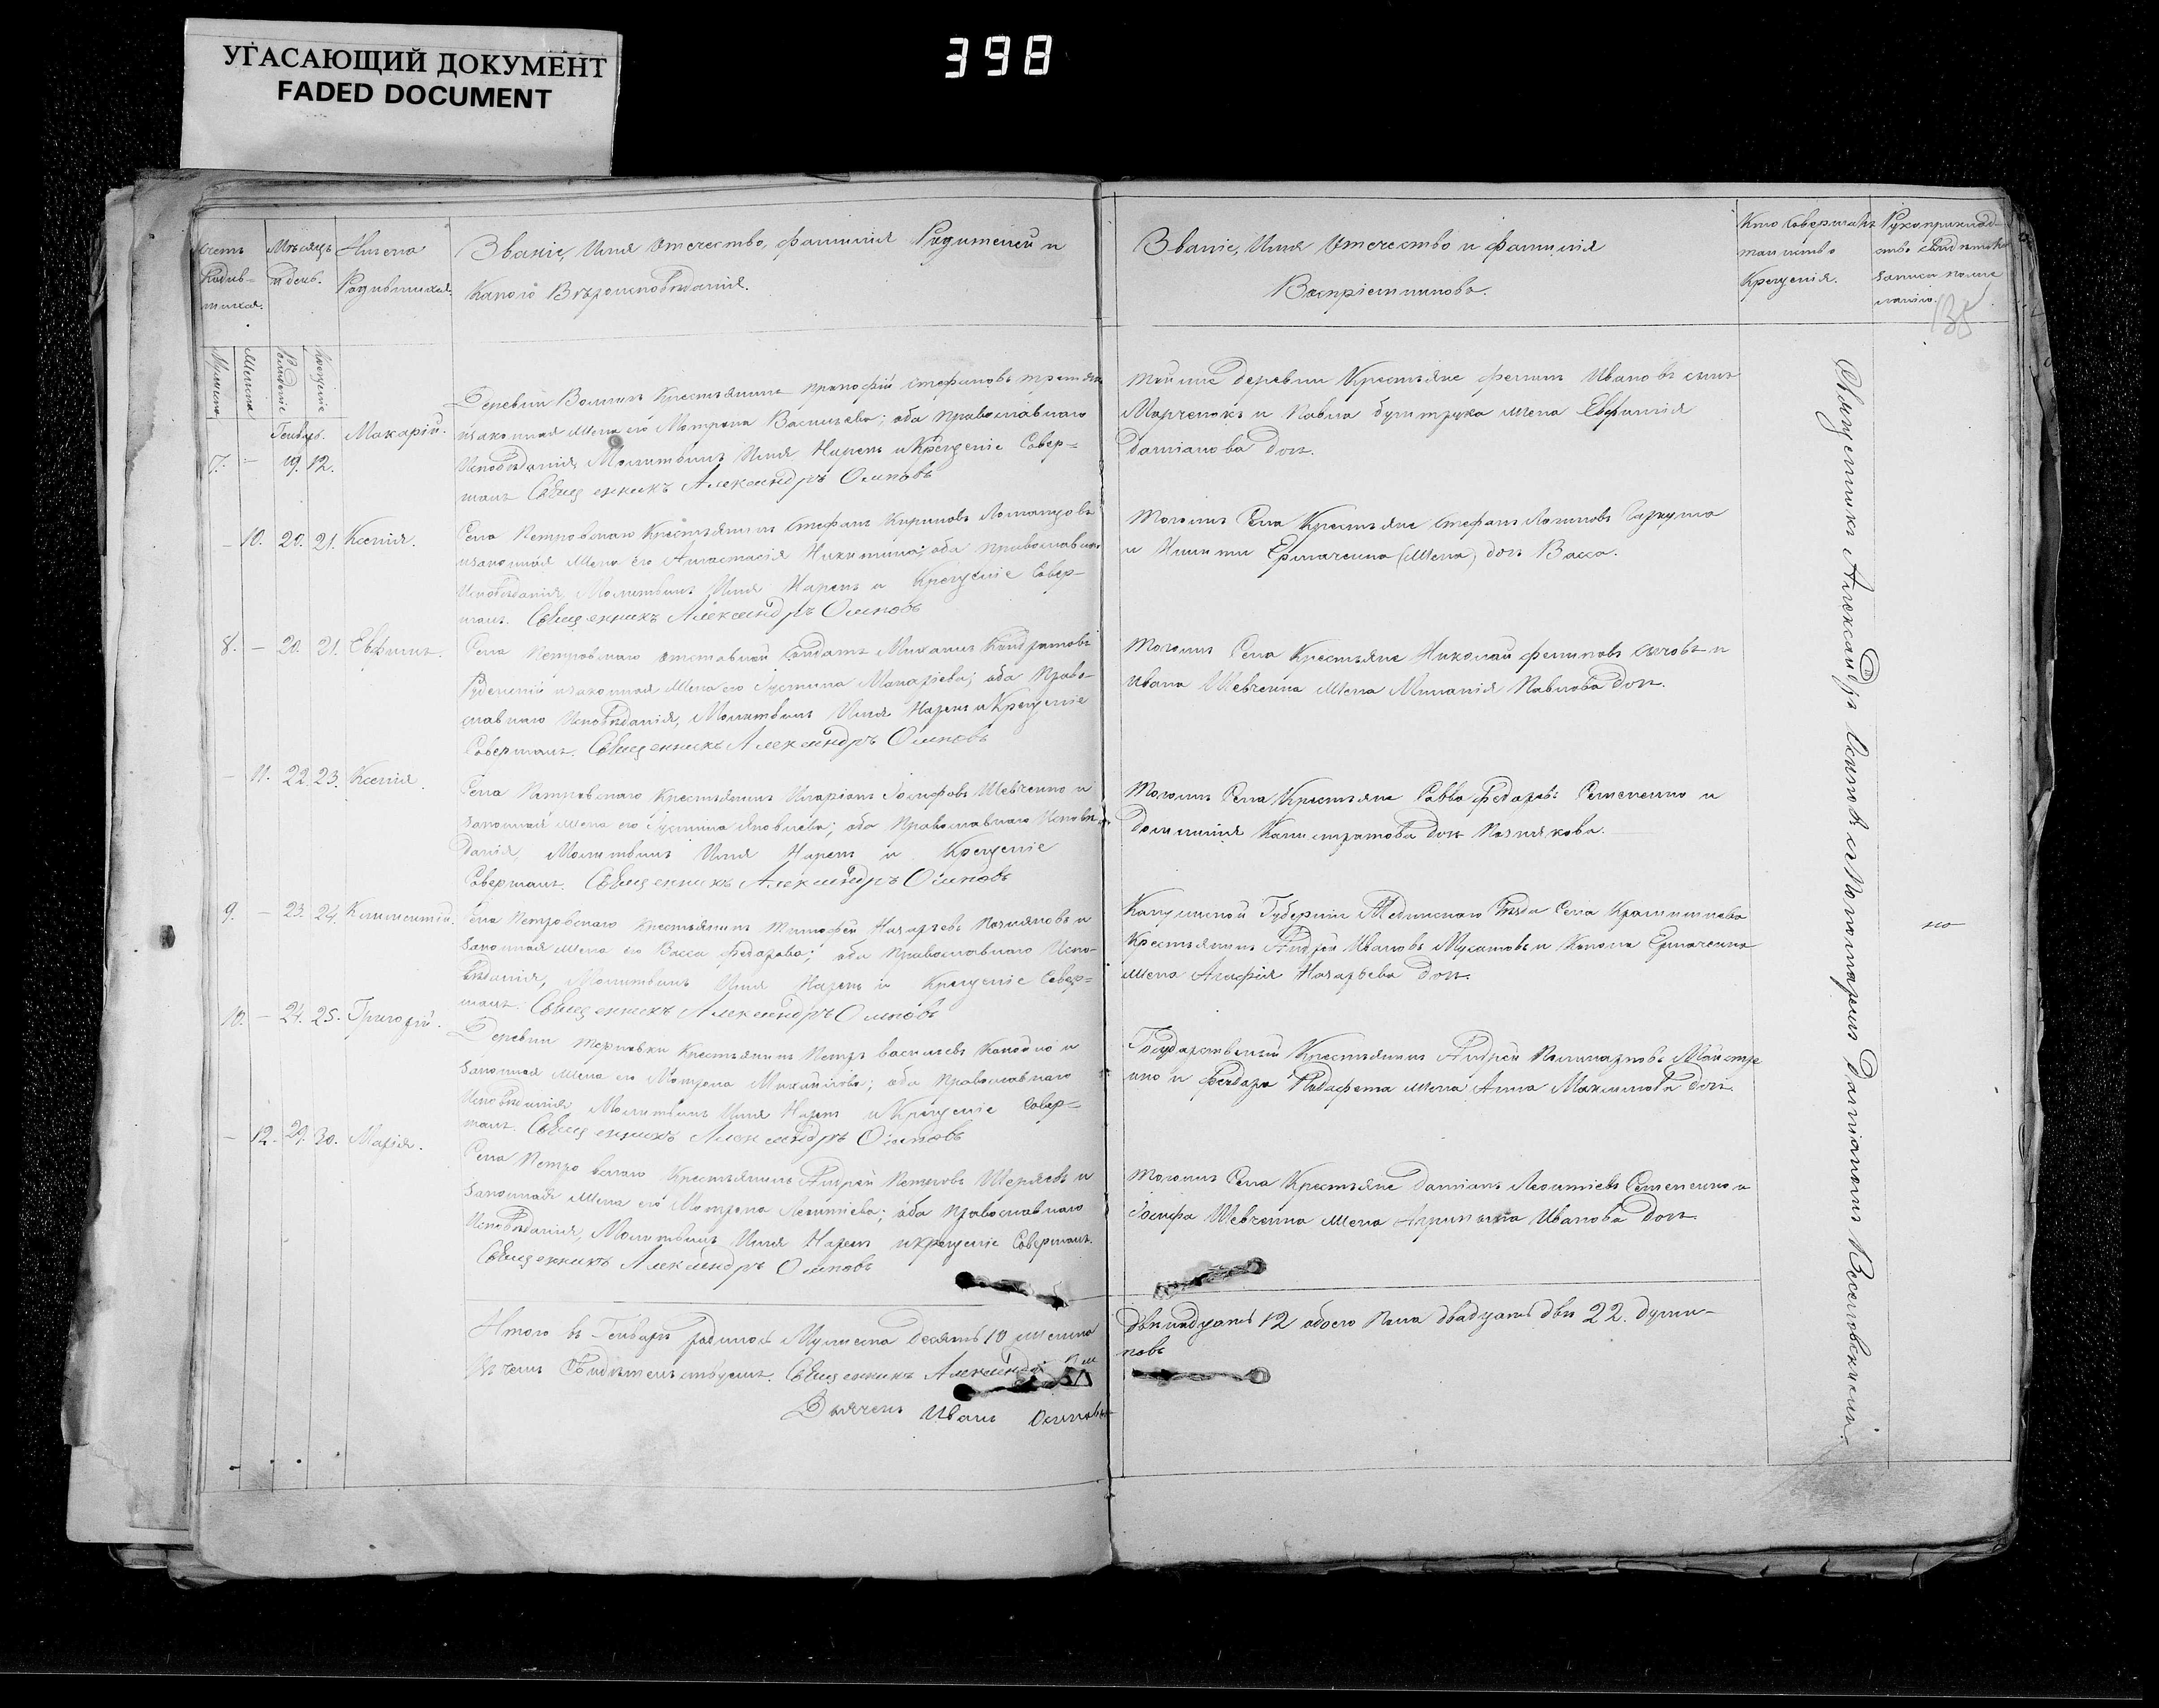 УГАСАЮЩИЙ ДОКУМЕНТ
FADED DOCUMENT
398
Счетъ Родив-шихся.
Мѣсяцъ и день.
Имена Родившихся.
Званіе, Имя Отчество, Фамилія Родителей и
Какого Вѣроисповѣданія.
Званіе, Имя Отчество и Фамилія
Воспріемниковъ.
Кто Совершалъ
таинство
Крещенія.
Рукоприклад-
ство свидѣтелей
записи по же
ланію.
135
Мужеска
Женска
Рожденіе
Крещеніе
Генварь.
7. — 19. 12. Макарій.
Деревни крестьянинъ Прокофій Стефановъ
и законная жена его Мотрона Васильева; оба православнаго
Исповѣданія, Молитвилъ Имя Нарекъ и Крещеніе Совер-
шалъ Священникъ Александръ Осиповъ
той же деревни Крестьяне Филипъ Ивановъ сынъ
Марченокъ и Павла жена Евфимія
Даміанова дочь.
— 10. 20. 21. Ксенія.
Села Петровскаго Крестьянинъ Стефанъ Кириловъ
изаконная жена его Анастасія Никитина; оба православнаго
Исповѣданія, Молитвилъ Имя Нарекъ и Крещеніе Совер-
шалъ. Священникъ Александръ Осиповъ
Тогожъ Села Крестьяне Стефанъ Логиновъ
и Никиты Ермаченка (жена) дочь Васса.
8. — 20. 21. Евфимъ.
Села Петровскаго отставной Солдатъ Михаилъ Кондратовъ
Руденкій изаконная жена его Іустина Макаріева; оба Право-
славнаго Исповѣданія, Молитвилъ Имя Нарекъ и Крещеніе
Совершалъ. Священникъ Александръ Осиповъ
Тогожъ Села Крестьяне Николай Филиповъ и
Ивана Шевченка жена Миланія Павлова дочь.
— 11. 22. 23. Ксенія.
Села Петровскаго крестьянинъ Иларіонъ Іосифовъ Шевченко и
законная жена его Іустина Яковлева; оба Православнаго Исповѣ-
данія, Молитвилъ Имя Нарекъ и Крещеніе
Совершалъ. Священникъ Александръ Осиповъ
Тогожъ Села Крестьяне Савва Федоровъ Семененко и
Домникія Калистратова дочь Познякова.
9. — 23. 24. Климентій.
Села Петровскаго крестьянинъ Тимофей Назарьевъ Позняковъ и
законная жена его Васса Федорова; оба Православнаго Испо-
вѣданія, Молитвилъ Имя Нарекъ и Крещеніе Совер-
шалъ. Священникъ Александръ Осиповъ
Калужской Губерніи Медынскаго Уѣзда Села
Крестьянинъ Андрей Ивановъ Мусатовъ и Конона Ермаченка
жена Агафія Назарьева дочь.
но
10. — 24. 25. Григорій.
Деревни Терновки Крестьянинъ Петръ Васильевъ и
законная жена его Мотрона Михайлова; оба Православнаго
Исповѣданія, Молитвилъ Имя Нарекъ и Крещеніе Совер-
шалъ. Священникъ Александръ Осиповъ
Государственный Крестьянинъ Андрей Поликарповъ Майстре
нко и Федора жена Анна Максимова дочь.
— 12. 29. 30. Марія.
Села Петровскаго Крестьянинъ Андрей Петровъ и
законная жена его Мотрона Леонтіева; оба православнаго
Исповѣданія, Молитвилъ Имя Нарекъ и крещеніе Совершалъ.
Священникъ Александръ Осиповъ
Тогожъ Села Крестьяне Даміанъ Леонтіевъ Семененко и
Іосифа Шевченка жена Акрипина Иванова дочь.
Итого въ Генварѣ родилось Мужеска десять 10 женска
двѣнадцать 12 обоего Пола двадцать двѣ 22. души
Въ чемъ Свидѣтельствуемъ. Священникъ Александръ
Дьячекъ Иванъ Осиповъ
Священникъ Александръ Осиповъ съ Пономаремъ Даміаномъ